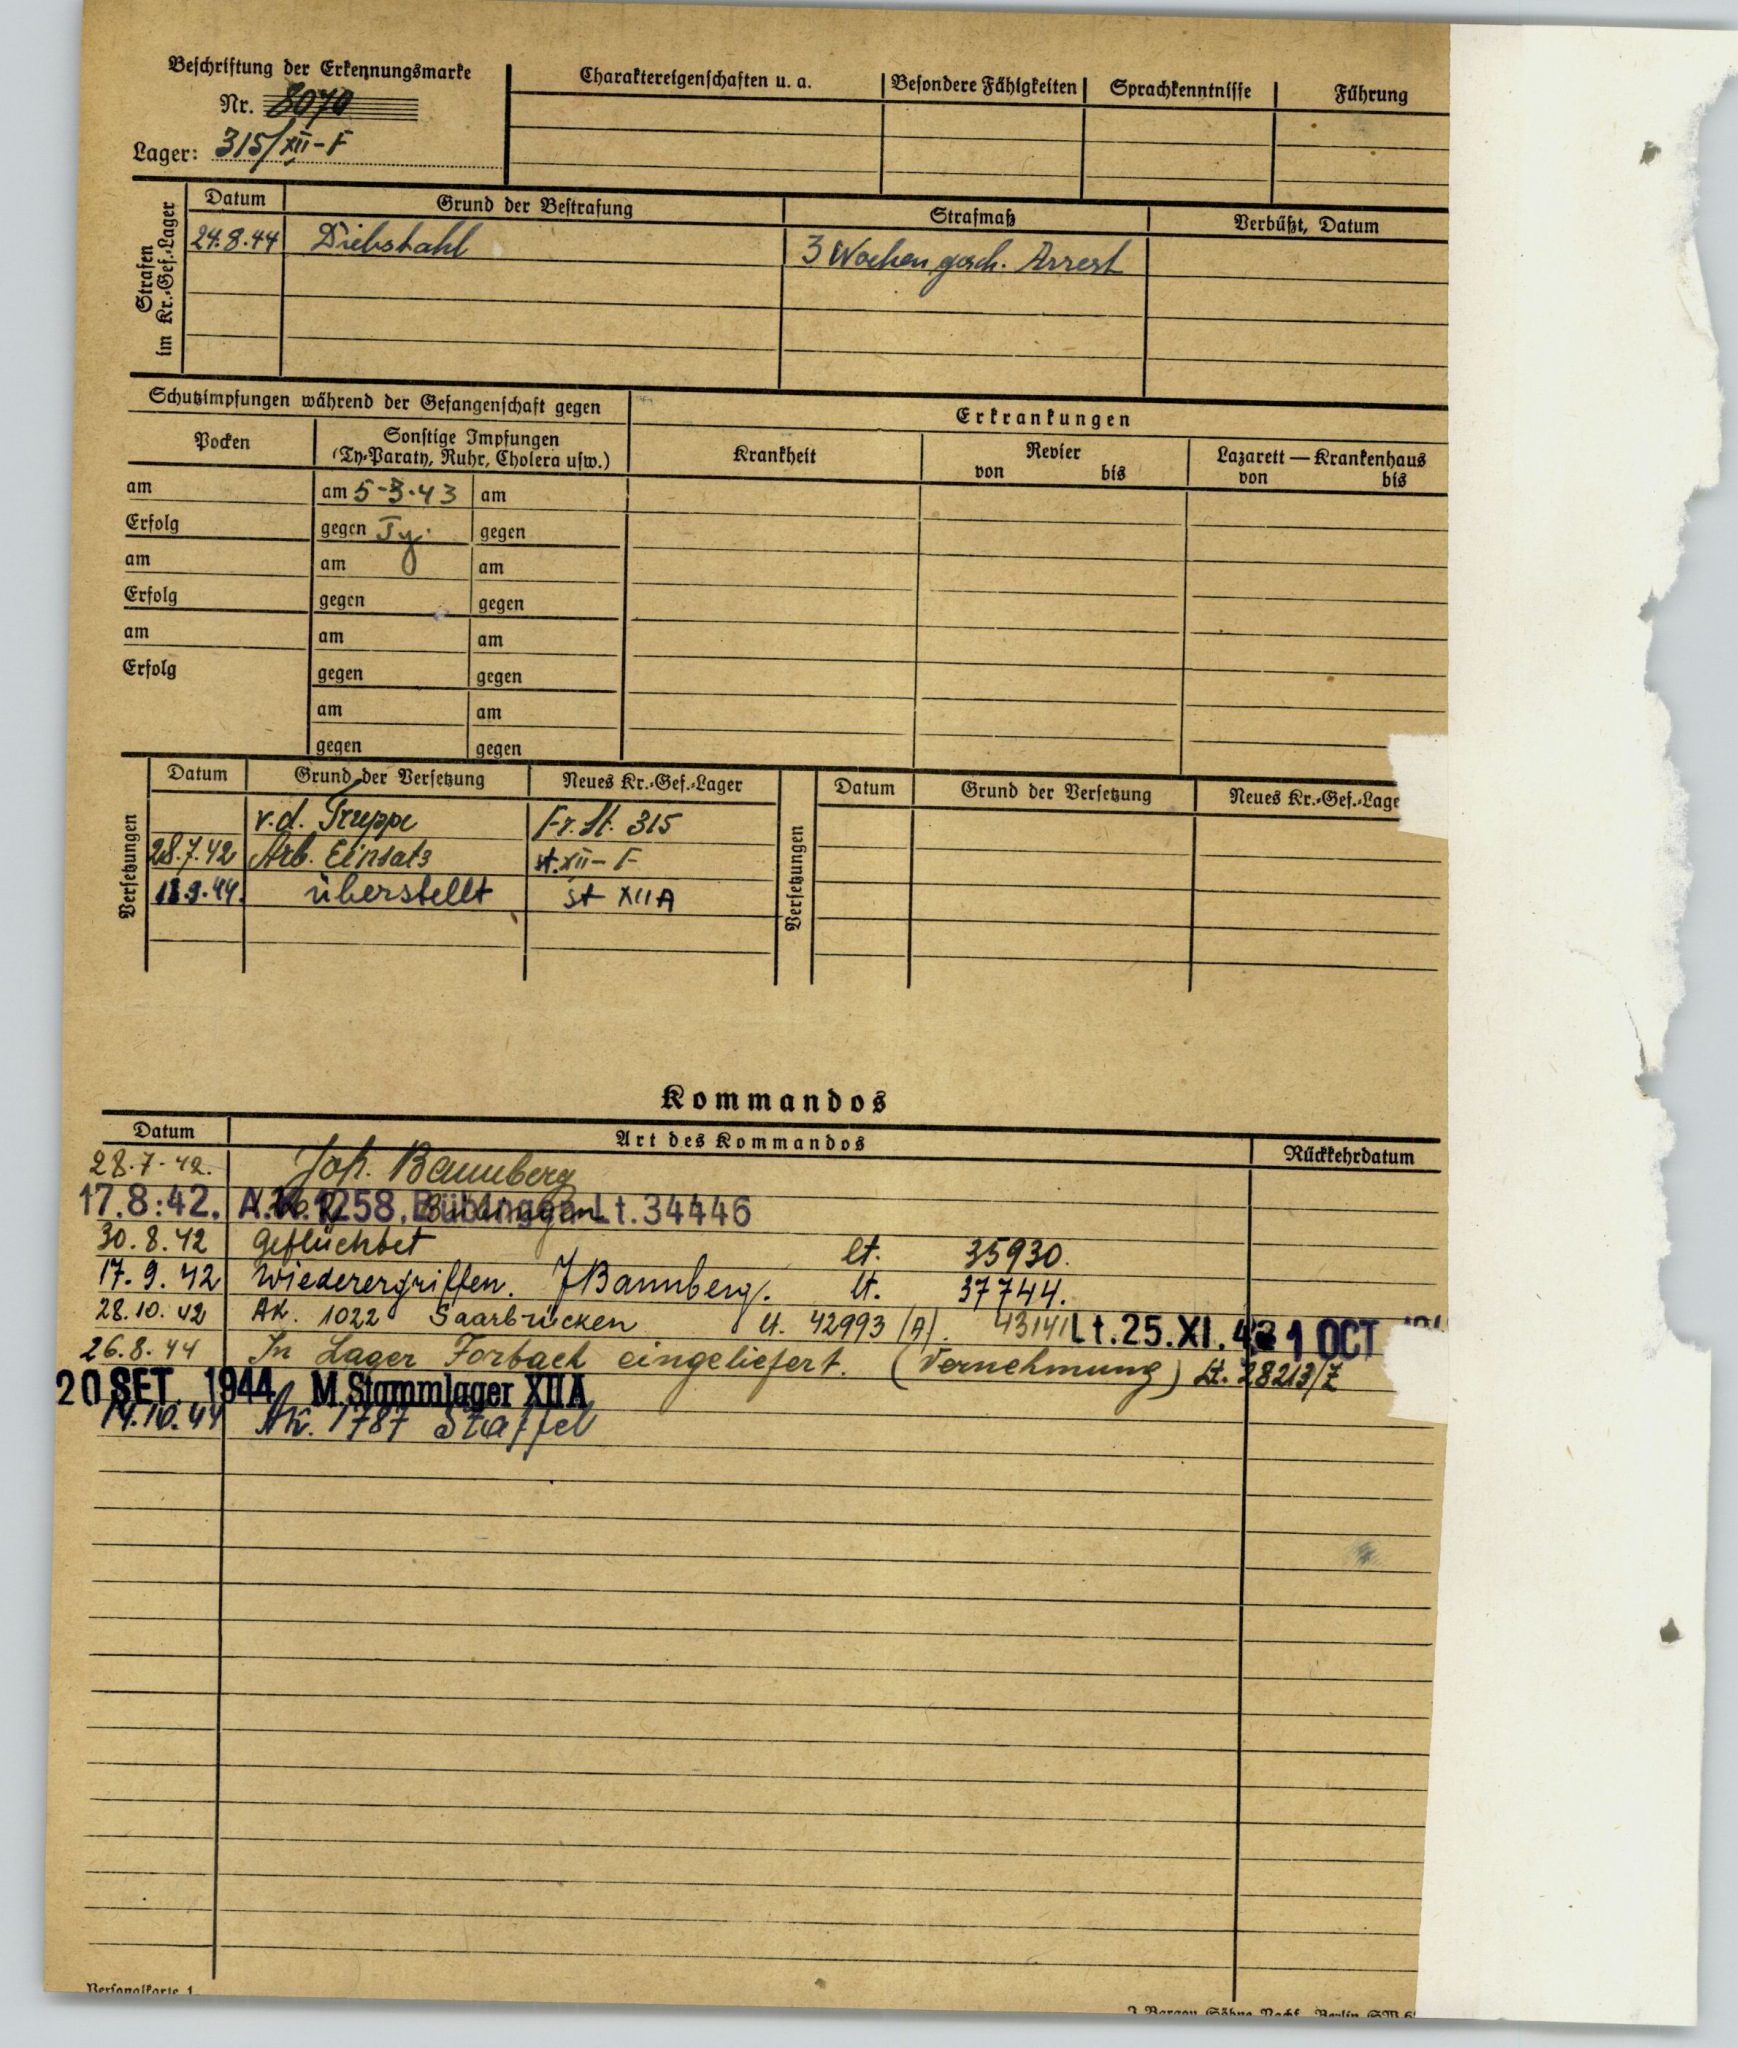 Beschriftung der Erkennungsmarke
Nr. 8070
Lager: 315/XII-F
Charaktereigenschaften u. a. Besondere Fähigkeiten Sprachkenntnisse Führung
Strafen im Kr.-Gef.-Lager
Datum Grund der Bestrafung Strafmaß Verbüßt, Datum
24.8.44 Diebstahl 3 Wochen gesch. Arrest
Schutzimpfungen während der Gefangenschaft gegen Erkrankungen
Pocken Sonstige Impfungen (Ty-Paraty, Ruhr, Cholera usw.) Krankheit Revier von bis Lazarett — Krankenhaus von bis
am am 5-3-43 am
Erfolg gegen Ty. gegen
am am am
Erfolg gegen gegen
am am am
Erfolg gegen gegen
am am
gegen gegen
Versetzungen Datum Grund der Versetzung Neues Kr.-Gef.-Lager Versetzungen Datum Grund der Versetzung Neues Kr.-Gef.-Lage
v. d. Truppe Fr. St. 315
28.7.42 Arb. Einsatz St. XII-F
.9.44. überstellt St XII A
Kommandos
Datum Art des Kommandos Rückkehrdatum
28.7.42. Joh. Bannberg
17.8:42. A.K.1258. Bübingen Lt.34446
30.8.42 Geflüchtet lt. 35930.
17.9.42 Wiederergriffen. J Bannberg. lt. 37744.
28.10.42 AK. 1022 Saarbrücken lt. 42993 (A). 43141 Lt.25.XI.42 1 OCT
26.8.44 In Lager Forbach eingeliefert. (Vernehmung) Lt. 28213/Z
20 SET. 1944 M.Stammlager XII A
14.10.44 AK. 1787 Staffel
Personalkarte 1